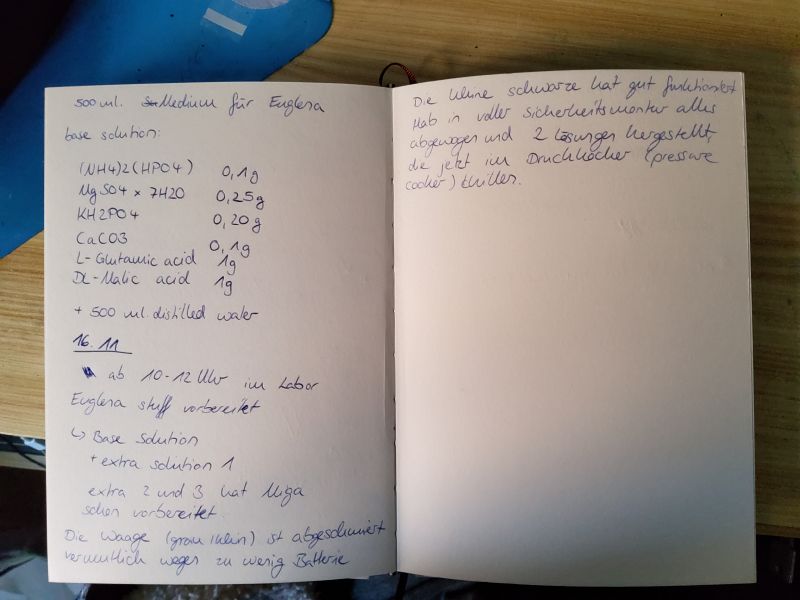 500 ml. Medium für Euglena
base solution:
(NH4)2(HPO4) 0,1g
MgSO4 × 7H2O 0,25g
KH2PO4 0,20g
CaCO3 0,1g
L-Glutamic acid 1g
DL-Malic acid 1g
+ 500 ml. distilled water
16.11
ab 10-12 Uhr im Labor
Euglena stuff vorbereitet
↳ Base solution
+ extra solution 1
extra 2 und 3 hat
schon vorbereitet.
Die Waage (grau klein) ist abgeschmiert
vermutlich wegen zu wenig Batterie
Die kleine schwarze hat gut funktioniert
Hab in voller Sicherheitsmontur alles
abgewogen und 2 Lösungen hergestellt,
die jetzt im Druckkocher (pressure
cooker) chillen.